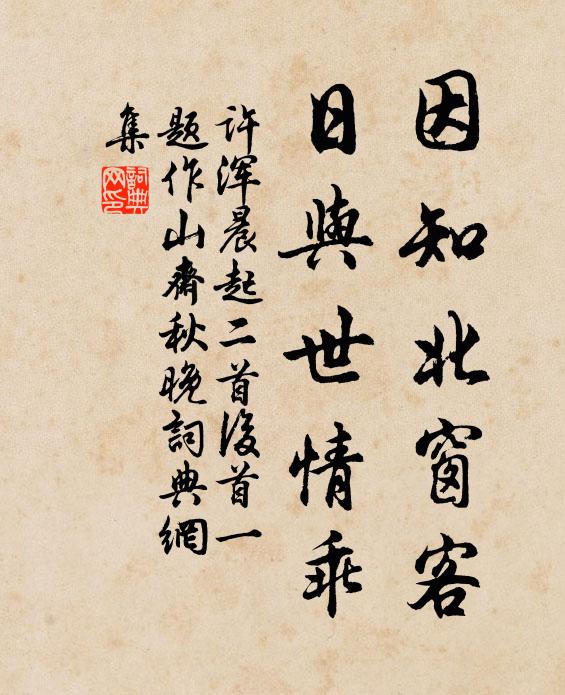 因知北窗客
日與世情乖
许浑晨起二首後首一
题作山齋秋晚詞典網
集
詞典网印